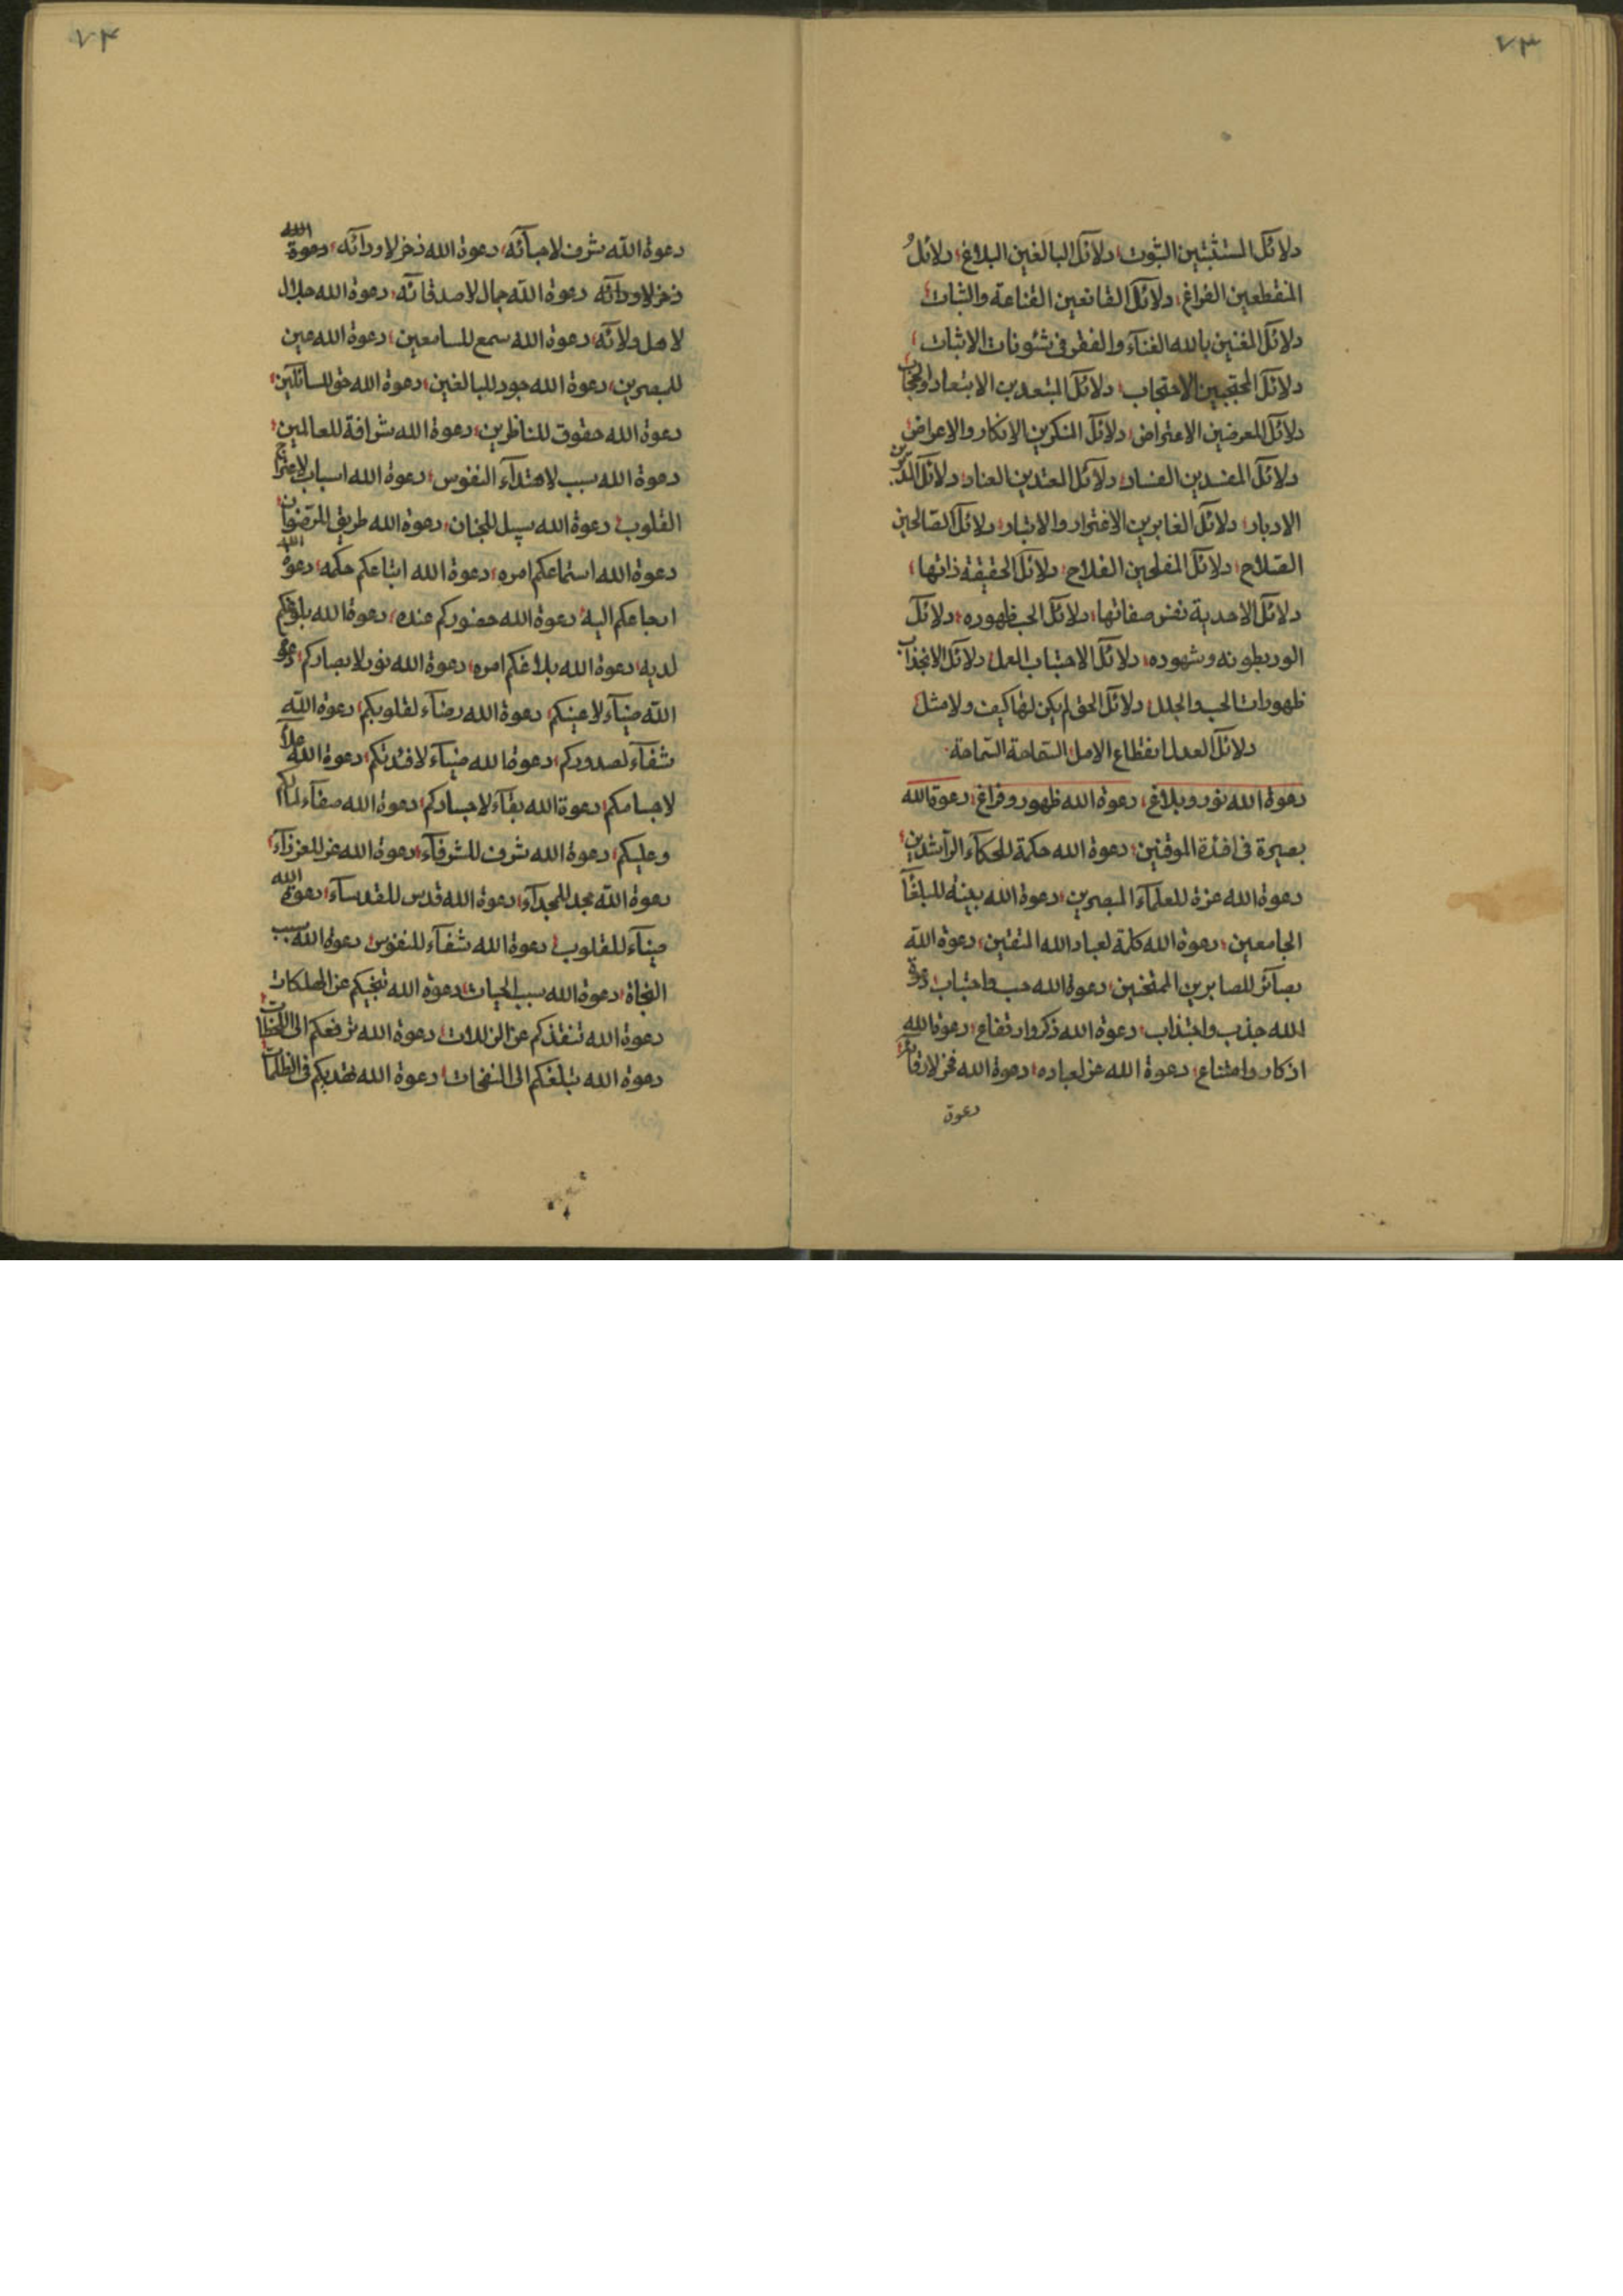 ٧٣
دلائل المستثبتين الثبوت؛ دلائل البالغين البلاغ؛ دلائل
المنقطعين الفراغ؛ دلائل القانعين القناعة والثبات؛
دلائل المغنين بالله الغناء والفقر فى شئونات الاثبات؛
دلائل المحتجبين الاحتجاب؛ دلائل المبتعدين الابتعاد والحجاب
دلائل المعرضين الاعتراض؛ دلائل المنكرين الانكار والاعراض
دلائل المفسدين الفساد؛ دلائل المعتدين العناد؛ دلائل المدبرين
الادبار؛ دلائل الغابرين الاغترار والادبار؛ دلائل الصالحين
الصلاح؛ دلائل المفلحين الفلاح؛ دلائل الحقيقة ذاتها؛
دلائل الاحدية نفس صفاتها؛ دلائل الحب ظهوره؛ دلائل
الود بطونه وشهوده؛ دلائل الاجتباب العمل؛ دلائل الانجذاب
ظهورات الحب والجلل؛ دلائل الحق لم يكن لها كيف ولا مثل
دلائل العدل انقطاع الامل السماحة السماحة
دعوة الله نور وبلاغ؛ دعوة الله ظهور وفراغ؛ دعوة الله
بصيرة فى افئدة الموقنين؛ دعوة الله حكمة للحكمآء الرآشدين؛
دعوة الله عزة للعلمآء المبصرين؛ دعوة الله بينة للبلغآء
الجامعين؛ دعوة الله كلمة لعباد الله المتقين؛ دعوة الله
بصآئر للصابرين الممتحنين؛ دعوة الله حب واجتباب؛ دعوة
الله جذب واجتذاب؛ دعوة الله ذكر وارتفاع؛ دعوة الله
اذكار وامتناع؛ دعوة الله عز لعباده؛ دعوة الله فخر لارقائه؛
دعوة
٧٤
دعوة الله شرف لاحبآئه؛ دعوة الله ذخر لاودآئه؛ دعوة الله
ذخر لاودآئه دعوة الله جمال لاصدقآئه؛ دعوة الله جلال
لاهل ولائه؛ دعوة الله سمع للسامعين؛ دعوة الله عين
للبصرين؛ دعوة الله جود للبالغين؛ دعوة الله حق للسآئلين؛
دعوة الله حقوق للناظرين؛ دعوة الله شرافة للعالمين؛
دعوة الله سبب لاهتدآء النفوس؛ دعوة الله اسباب لاعتراج
القلوب؛ دعوة الله سبيل للجنان؛ دعوة الله طريق للرضوان؛
دعوة الله استماعكم امره؛ دعوة الله اتباعكم حكمه؛ دعوة الله
ارجاعكم اليه؛ دعوة الله حضوركم عنده؛ دعوة الله بلوغكم
لديه؛ دعوة الله بلاغكم امره؛ دعوة الله نور لابصاركم؛ دعوة
الله ضيآء لاعينكم؛ دعوة الله رضآء لقلوبكم؛ دعوة الله
شفآء لصدوركم؛ دعوة الله ضيآء لافئدتكم؛ دعوة الله علآء
لاجسامكم؛ دعوة الله بقآء لاجسادكم؛ دعوة الله صفآء لما لكم
وعليكم؛ دعوة الله شرف للشرفآء؛ دعوة الله عز للعززآء؛
دعوة الله مجد للمجدآء؛ دعوة الله قدس للقدسآء؛ دعوة الله
ضيآء للقلوب؛ دعوة الله شفآء للنفوس؛ دعوة الله سبب
النجاة؛ دعوة الله سبب الحيات؛ دعوة الله تنجيكم عن الهلكات
دعوة الله تنقذكم عن الزلات؛ دعوة الله ترفعكم الى اللحظات؛
دعوة الله تبلغكم الى النفحات؛ دعوة الله تهديكم فى الظلمات؛